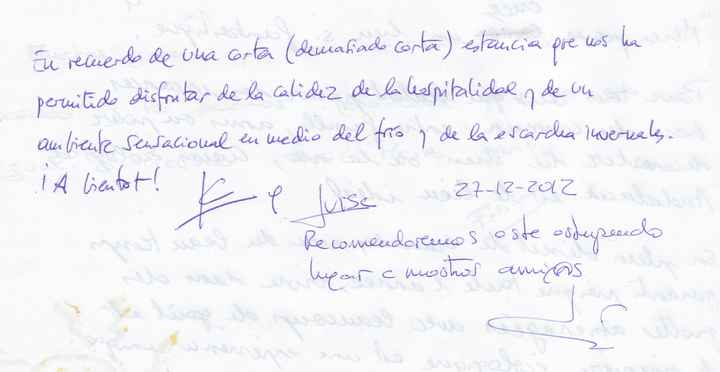 En recuerdo de una corta (demasiado corta) estancia que nos ha
permitido disfrutar de la calidez de la hospitalidad y de un
ambiente sensacional en medio del frío y de la escarcha invernales.
¡A bientot!
27-12-2012
Recomendaremos este estupendo
lugar a nuestros amigos